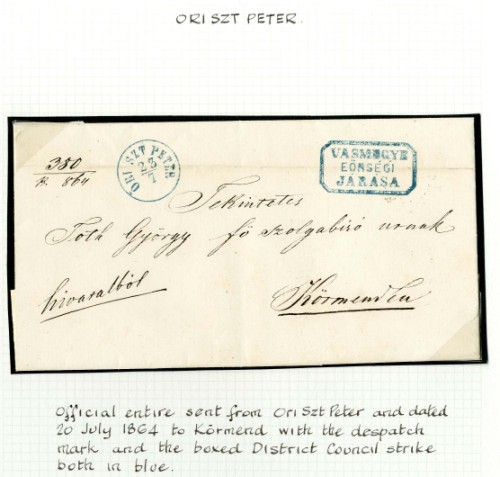 ORI SZT PETER.
ORI SZT PETER
VASMEGYE
EÖRSÉGI
JARASA
380
864
Tekintetes
Tóth György fö szolgabiró urnak
hivatalból
Körmenden
Official entire sent from Ori Szt Peter and dated
20 July 1864 to Körmend with the despatch
mark and the boxed District Council strike
both in blue.